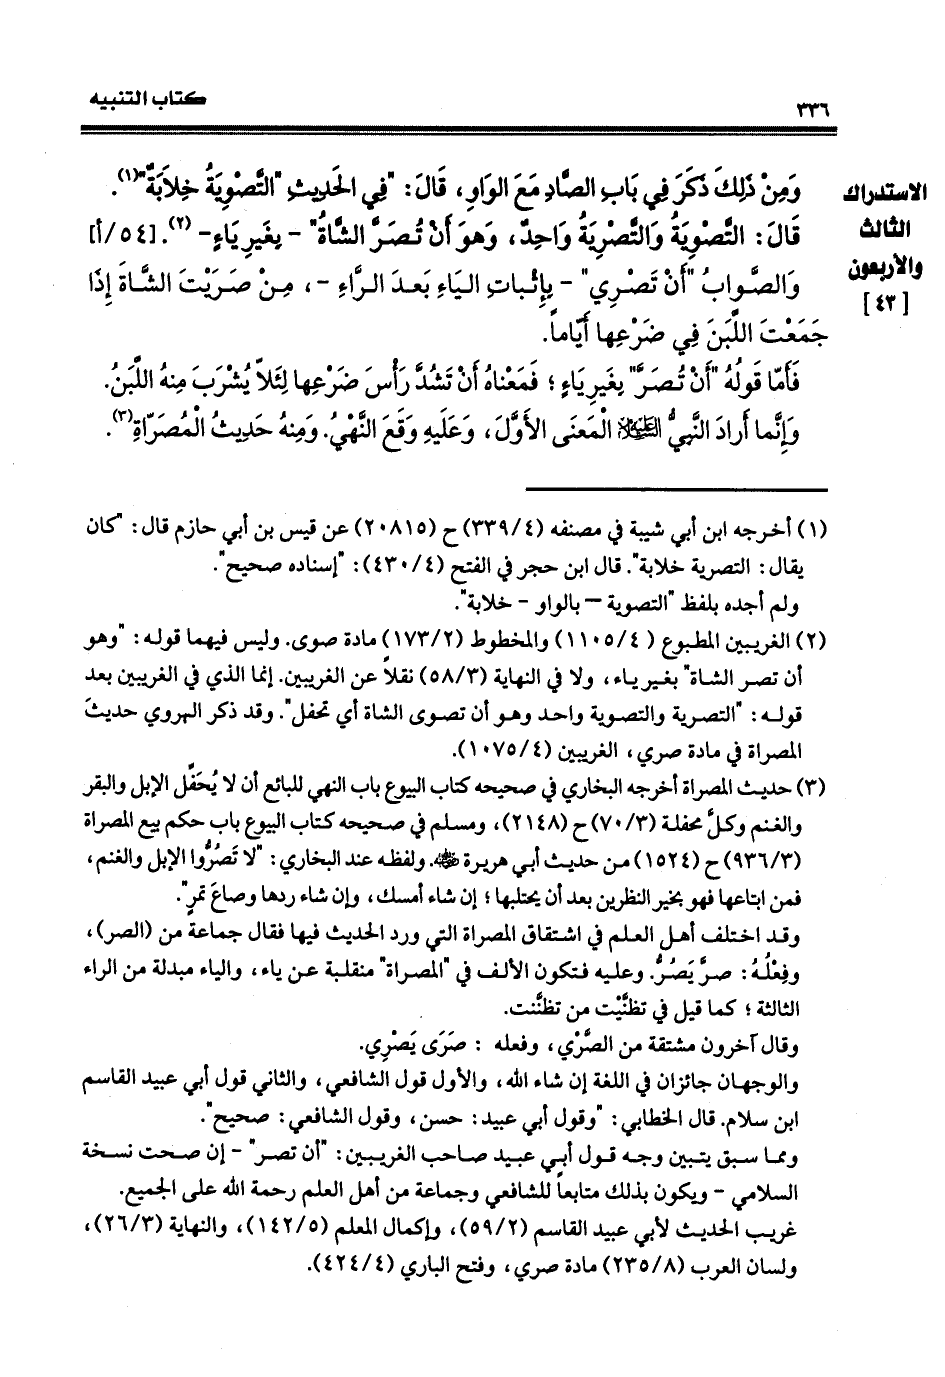 ٣٣٦
كتاب التنبيه
الاستدراك
الثالث
والأربعون
[٤٣]
وَمِنْ ذَلِكَ ذَكَرَ فِي بَابِ الصَّادِ مَعَ الوَاوِ، قَالَ: "فِي الحَدِيثِ "التَّصْوِيَةُ خِلابَةٌ"(١).
قَالَ: التَّصْوِيَةُ وَالتَّصْرِيَةُ وَاحِدٌ، وَهوَ أَنْ تُصَرَّ الشَّاةُ" - بِغَيرِ يَاءٍ- (٢). [٥٤/أ]
وَالصَّوابُ "أَنْ تَصْرِي" - بِإثْباتِ اليَاءِ بَعدَ الرَّاءِ -، مِنْ صَرَيْتَ الشَّاةَ إِذَا
جَمَعْتَ اللَّبَنَ فِي ضَرْعِها أَيَّاماً.
فَأَمَّا قَولُهُ "أَنْ تُصَرَّ" بِغَيرِ يَاءٍ؛ فَمَعْناهُ أَنْ تَشُدَّ رَأْسَ ضَرْعِها لِئَلاَّ يُشْرَبَ مِنهُ اللَّبَنُ.
وَإِنَّما أَرادَ النَّبِيُّ ﷺ الْمَعنَى الأَوَّلَ، وَعَلَيهِ وَقَعَ النَّهْيُ. وَمِنهُ حَدِيثُ الْمُصَرّاةِ(٣).
(١) أخرجه ابن أبي شيبة في مصنفه (٣٣٩/٤) ح (٢٠٨١٥) عن قيس بن أبي حازم قال: "كان
يقال: التصرية خلابة". قال ابن حجر في الفتح (٤٣٠/٤): "إسناده صحيح".
ولم أجده بلفظ "التصوية – بالواو - خلابة".
(٢) الغريبين المطبوع (١١٠٥/٤) والمخطوط (١٧٣/٢) مادة صوى. وليس فيهما قوله: "وهو
أن تصر الشاة" بغير ياء، ولا في النهاية (٥٨/٣) نقلاً عن الغريبين. إنما الذي في الغريبين بعد
قوله: "التصرية والتصوية واحد وهو أن تصوى الشاة أي تحفل". وقد ذكر الهروي حديثَ
المصراة في مادة صري، الغريبين (١٠٧٥/٤).
(٣) حديث المصراة أخرجه البخاري في صحيحه كتاب البيوع باب النهي للبائع أن لا يُحَفِّل الإبل والبقر
والغنم وكلَّ محفلة (٧٠/٣) ح (٢١٤٨)، ومسلم في صحيحه كتاب البيوع باب حكم بيع المصراة
(٩٣٦/٣) ح (١٥٢٤) من حديث أبي هريرة ﷺ. ولفظه عند البخاري: "لا تَصُرُّوا الإبل والغنم،
فمن ابتاعها فهو بخير النظرين بعد أن يحتلبها؛ إن شاء أمسك، وإن شاء ردها وصاعَ تمرٍ".
وقد اختلف أهل العلم في اشتقاق المصراة التي ورد الحديث فيها فقال جماعة من (الصر)،
وفِعْلُهُ: صرَّ يَصُرُّ. وعليه فتكون الألف في "المصراة" منقلبة عن ياء، والياء مبدلة من الراء
الثالثة؛ كما قيل في تظنَّيْت من تظنَّنت.
وقال آخرون مشتقة من الصَّرْي، وفعله : صَرَى يَصْرِي.
والوجهان جائزان في اللغة إن شاء الله، والأول قول الشافعي، والثاني قول أبي عبيد القاسم
ابن سلام. قال الخطابي: "وقول أبي عبيد: حسن، وقول الشافعي: صحيح".
ومما سبق يتبين وجه قول أبي عبيد صاحب الغريبين: "أن تصر" - إن صحت نسخة
السلامي - ويكون بذلك متابعاً للشافعي وجماعة من أهل العلم رحمة الله على الجميع.
غريب الحديث لأبي عبيد القاسم (٥٩/٢)، وإكمال المعلم (١٤٢/٥)، والنهاية (٢٦/٣)،
ولسان العرب (٢٣٥/٨) مادة صري، وفتح الباري (٤٢٤/٤).